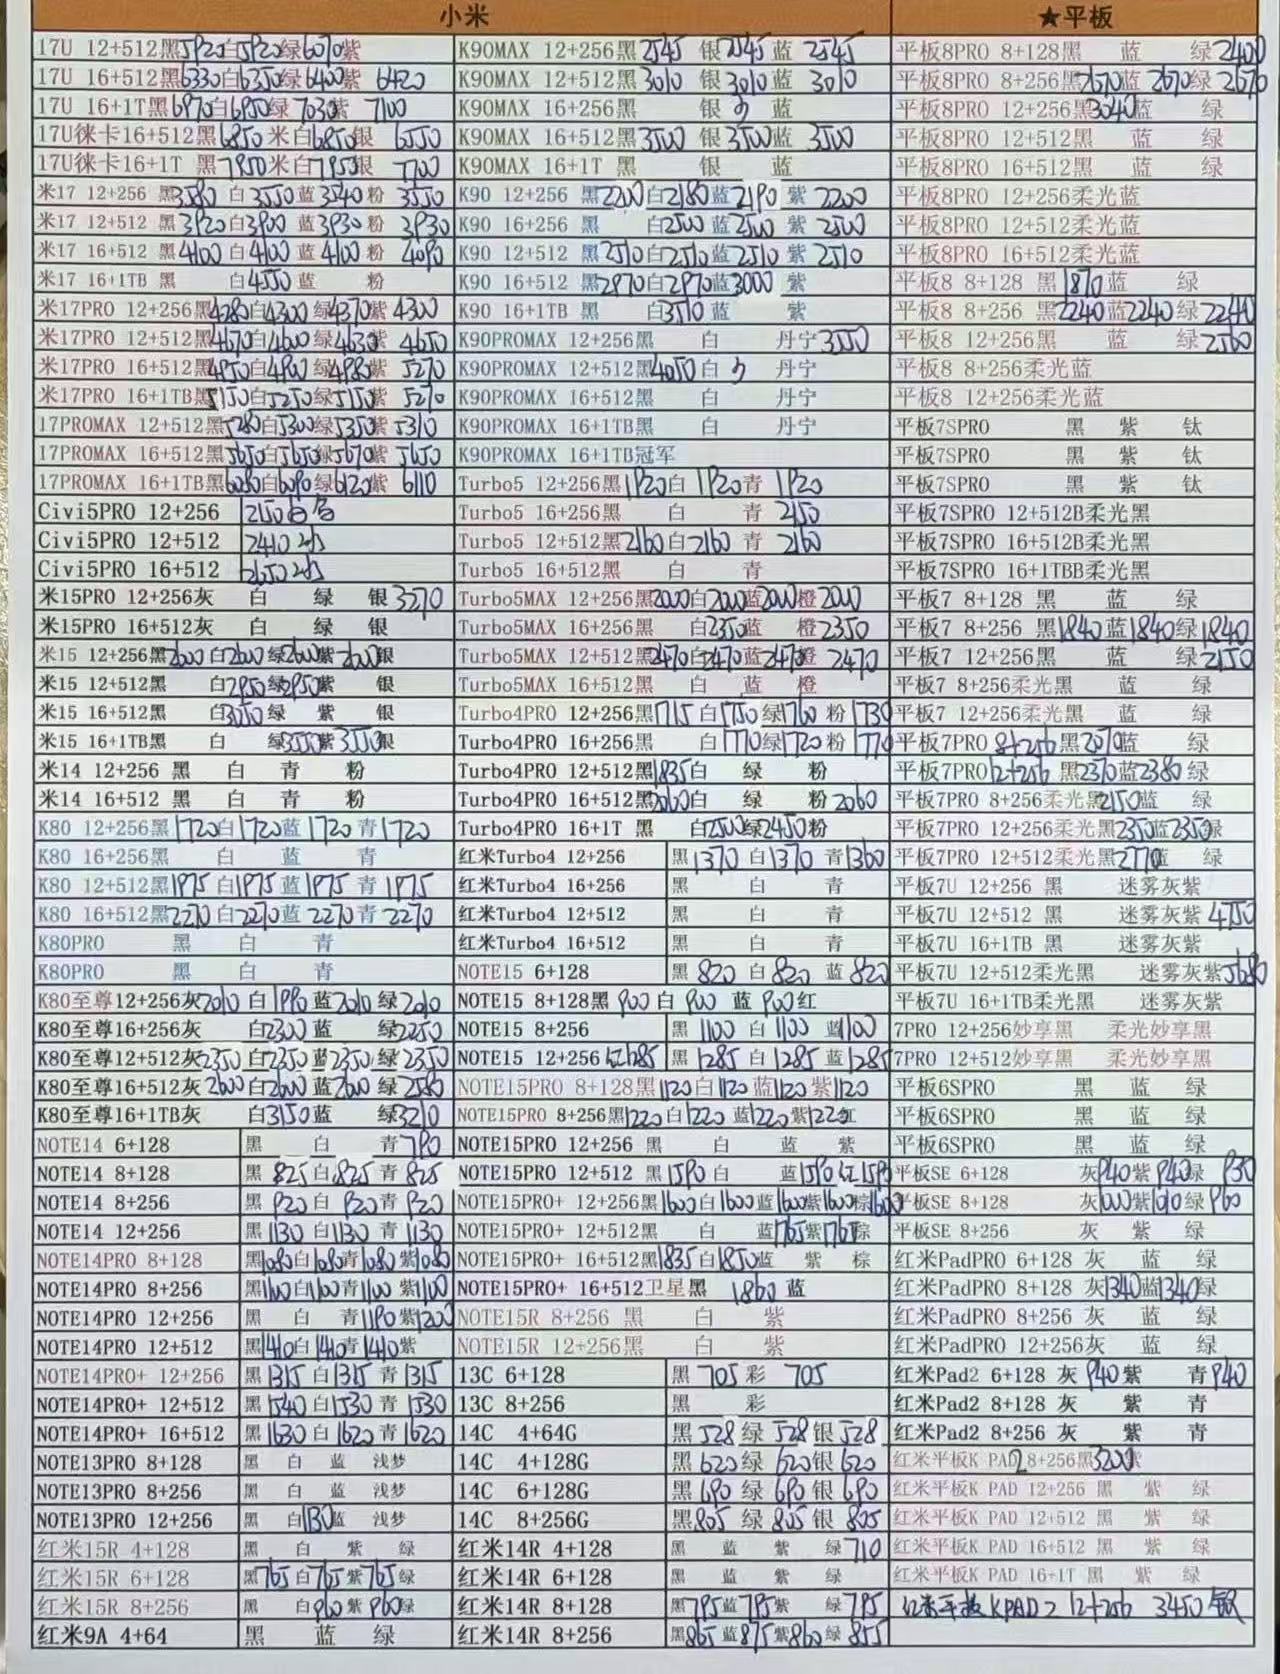 小米
17U 12+512黑5920白5920绿6070紫
17U 16+512黑6330白6350绿6400紫 6420
17U 16+1T黑6970白6950绿7030紫 7100
17U徕卡16+512黑6850米白6850银 6550
17U徕卡16+1T 黑7950米白7950银 7700
米17 12+256 黑3580 白3550蓝3540粉 3550
米17 12+512 黑3920白3900 蓝3930粉 3930
米17 16+512 黑4100白4100 蓝4100粉 4090
米17 16+1TB 黑 白4550蓝 粉
米17PRO 12+256黑4280白4300 绿4370紫 4300
米17PRO 12+512黑4670白4600 绿4630紫 4650
米17PRO 16+512黑4950白4900 绿4980紫 5270
米17PRO 16+1TB黑5150白5250绿5150紫 5270
17PROMAX 12+512黑5280白5300绿5350紫5310
17PROMAX 16+512黑5650白5650绿5670紫5650
17PROMAX 16+1TB黑6080白6090绿6120紫 6110
Civi5PRO 12+256 2150白
Civi5PRO 12+512 2410
Civi5PRO 16+512 2650
米15PRO 12+256灰 白 绿 银3270
米15PRO 16+512灰 白 绿 银
米15 12+256黑2600 白2600绿2600紫2600银
米15 12+512黑 白2950绿2950紫 银
米15 16+512黑 白3050绿 紫 银
米15 16+1TB黑 白 绿3550紫3550银
米14 12+256 黑 白 青 粉
米14 16+512 黑 白 青 粉
K80 12+256黑1720白1720蓝1720青1720
K80 16+256黑 白 蓝 青
K80 12+512黑1975白1975蓝1975青1975
K80 16+512黑2270白2270蓝2270青2270
K80PRO 黑 白 青
K80PRO 黑 白 青
K80至尊12+256灰2010 白1990蓝2010绿2010
K80至尊16+256灰 白2300蓝 绿2250
K80至尊12+512灰2350白2350蓝2350绿2350
K80至尊16+512灰2600白2600蓝2600绿2580
K80至尊16+1TB灰 白3150蓝 绿3210
NOTE14 6+128 黑 白 青790
NOTE14 8+128 黑825白825青825
NOTE14 8+256 黑920白920青920
NOTE14 12+256 黑1130白1130青1130
NOTE14PRO 8+128 黑1080白1080青1080紫1080
NOTE14PRO 8+256 黑1100白1100青1100紫1100
NOTE14PRO 12+256 黑 白 青1190紫1200
NOTE14PRO 12+512 黑1410白1410青1410紫
NOTE14PRO+ 12+256 黑1315白1315青1315
NOTE14PRO+ 12+512 黑1540白1530青1530
NOTE14PRO+ 16+512 黑1630白1620青1620
NOTE13PRO 8+128 黑 白 蓝 浅梦
NOTE13PRO 8+256 黑 白 蓝 浅梦
NOTE13PRO 12+256 黑 白1130蓝 浅梦
红米15R 4+128 黑 白 紫 绿
红米15R 6+128 黑765白765紫765绿
红米15R 8+256 黑 白960紫960绿
红米9A 4+64 黑 蓝 绿
K90MAX 12+256黑2545 银2545蓝 2545
K90MAX 12+512黑3010 银3010蓝 3010
K90MAX 16+256黑 银 蓝
K90MAX 16+512黑3500 银3500蓝 3500
K90MAX 16+1T 黑 银 蓝
K90 12+256 黑2200白2180蓝2190 紫 2200
K90 16+256 黑 白2500蓝2500 紫 2500
K90 12+512 黑2510白2510蓝2510 紫 2510
K90 16+512 黑2970白2970蓝3000 紫
K90 16+1TB 黑 白3510蓝 紫
K90PROMAX 12+256黑 白 丹宁3550
K90PROMAX 12+512黑4050白 丹宁
K90PROMAX 16+512黑 白 丹宁
K90PROMAX 16+1TB黑 白 丹宁
K90PROMAX 16+1TB冠军
Turbo5 12+256黑1920白1920青 1920
Turbo5 16+256黑 白 青 2150
Turbo5 12+512黑2160白2160 青 2160
Turbo5 16+512黑 白 青
Turbo5MAX 12+256黑2000白2000蓝2000橙2000
Turbo5MAX 16+256黑 白2350蓝 橙2350
Turbo5MAX 12+512黑2470白2470蓝2470橙 2470
Turbo5MAX 16+512黑 白 蓝 橙
Turbo4PRO 12+256黑1715 白1750绿1760 粉1730
Turbo4PRO 16+256黑 白1770绿1720 粉1770
Turbo4PRO 12+512黑1835白 绿 粉
Turbo4PRO 16+512黑2060白 绿 粉2060
Turbo4PRO 16+1T 黑 白2500绿2450粉
红米Turbo4 12+256 黑1370白1370青1360
红米Turbo4 16+256 黑 白 青
红米Turbo4 12+512 黑 白 青
红米Turbo4 16+512 黑 白 青
NOTE15 6+128 黑820白820蓝820
NOTE15 8+128黑900白900蓝900红
NOTE15 8+256 黑1100白1100蓝1100
NOTE15 12+256红1285 黑1285白1285蓝1285
NOTE15PRO 8+128黑1120白1120蓝1120紫1120
NOTE15PRO 8+256黑1220白1220蓝1220紫1220红
NOTE15PRO 12+256 黑 白 蓝 紫
NOTE15PRO 12+512 黑1590白 蓝1590红1590
NOTE15PRO+ 12+256黑1600白1600蓝1600紫1600棕1600
NOTE15PRO+ 12+512黑 白 蓝1765紫1765棕
NOTE15PRO+ 16+512黑1835白1850蓝 紫 棕
NOTE15PRO+ 16+512卫星黑 1860 蓝
NOTE15R 8+256 黑 白 紫
NOTE15R 12+256黑 白 紫
13C 6+128 黑705彩 705
13C 8+256 黑 彩
14C 4+64G 黑528绿528银528
14C 4+128G 黑620绿620银620
14C 6+128G 黑690绿690银690
14C 8+256G 黑805绿805银805
红米14R 4+128 黑 蓝 紫 绿710
红米14R 6+128 黑 蓝 紫 绿
红米14R 8+128 黑795蓝795紫 绿795
红米14R 8+256 黑865蓝875紫860绿855
★平板
平板8PRO 8+128黑 蓝 绿2400
平板8PRO 8+256黑2670蓝2670绿2670
平板8PRO 12+256黑3040蓝 绿
平板8PRO 12+512黑 蓝 绿
平板8PRO 16+512黑 蓝 绿
平板8PRO 12+256柔光蓝
平板8PRO 12+512柔光蓝
平板8PRO 16+512柔光蓝
平板8 8+128 黑1870蓝 绿
平板8 8+256 黑2240蓝2240绿2240
平板8 12+256黑 蓝 绿2560
平板8 8+256柔光蓝
平板8 12+256柔光蓝
平板7SPRO 黑 紫 钛
平板7SPRO 黑 紫 钛
平板7SPRO 黑 紫 钛
平板7SPRO 12+512B柔光黑
平板7SPRO 16+512B柔光黑
平板7SPRO 16+1TBB柔光黑
平板7 8+128 黑 蓝 绿
平板7 8+256 黑1840蓝1840绿1840
平板7 12+256黑 蓝 绿2150
平板7 8+256柔光黑 蓝 绿
平板7 12+256柔光黑 蓝 绿
平板7PRO 8+256黑2070蓝 绿
平板7PRO 12+256 黑2370蓝2380绿
平板7PRO 8+256柔光黑2150蓝 绿
平板7PRO 12+256柔光黑2350蓝2350绿
平板7PRO 12+512柔光黑2770蓝 绿
平板7U 12+256 黑 迷雾灰紫
平板7U 12+512 黑 迷雾灰紫4750
平板7U 16+1TB 黑 迷雾灰紫
平板7U 12+512柔光黑 迷雾灰紫5680
平板7U 16+1TB柔光黑 迷雾灰紫
7PRO 12+256妙享黑 柔光妙享黑
7PRO 12+512妙享黑 柔光妙享黑
平板6SPRO 黑 蓝 绿
平板6SPRO 黑 蓝 绿
平板6SPRO 黑 蓝 绿
平板SE 6+128 灰940紫940绿 930
平板SE 8+128 灰1000紫1010绿960
平板SE 8+256 灰 紫 绿
红米PadPRO 6+128 灰 蓝 绿
红米PadPRO 8+128 灰1340蓝1340绿
红米PadPRO 8+256 灰 蓝 绿
红米PadPRO 12+256灰 蓝 绿
红米Pad2 6+128 灰940紫 青940
红米Pad2 8+128 灰 紫 青
红米Pad2 8+256 灰 紫 青
红米平板K PAD2 8+256黑3200紫
红米平板K PAD 12+256 黑 紫 绿
红米平板K PAD 12+512 黑 紫 绿
红米平板K PAD 16+512 黑 紫 绿
红米平板K PAD 16+1T 黑 紫 绿
红米平板KPAD2 12+256 3450 银